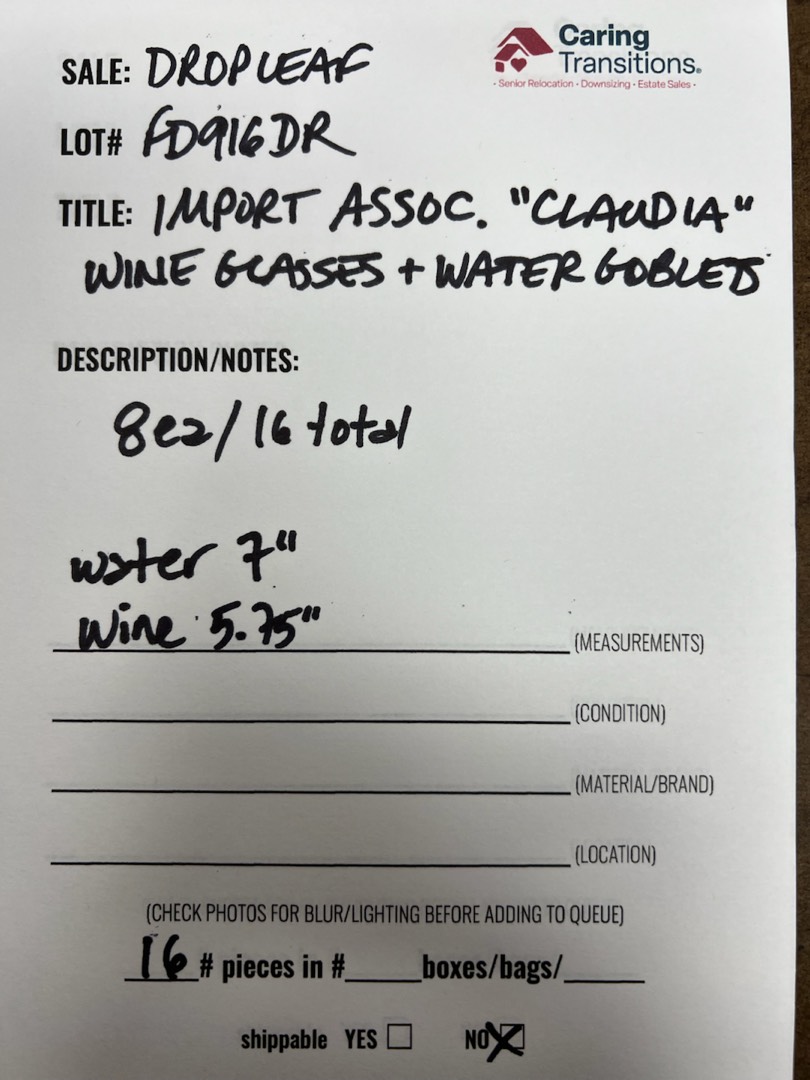 Caring
Transitions®
• Senior Relocation • Downsizing • Estate Sales •
SALE: DROPLEAF
LOT# FD916DR
TITLE: IMPORT ASSOC. "CLAUDIA"
WINE GLASSES + WATER GOBLETS
DESCRIPTION/NOTES:
8ea/16 total
water 7"
Wine 5.75" (MEASUREMENTS)
(CONDITION)
(MATERIAL/BRAND)
(LOCATION)
(CHECK PHOTOS FOR BLUR/LIGHTING BEFORE ADDING TO QUEUE)
16 # pieces in #____ boxes/bags/____
shippable YES ☐ NO ☒